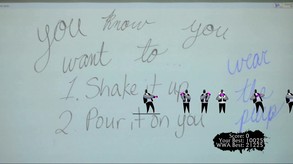 you know you
want to...
1. Shake it up
2 Pour it on you
wear
the
pulp
Score: 0
Your Best: 10025
WWA Best: 21225